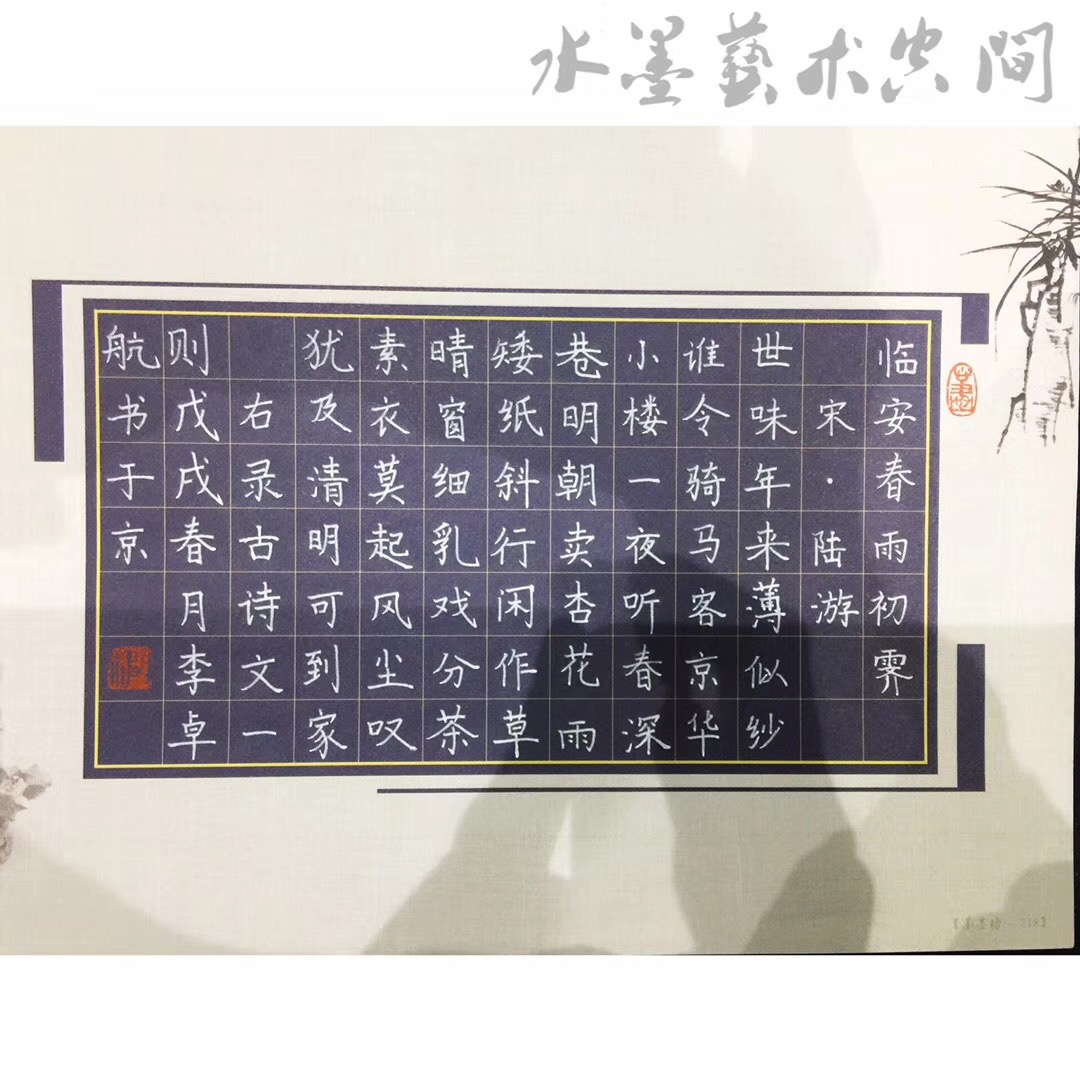 水墨藝术空间
临安春雨初霁
宋·陆游
世味年来薄似纱
谁令骑马客京华
小楼一夜听春深
巷明朝卖杏花雨
矮纸斜行闲作草
晴窗细乳戏分茶
素衣莫起风尘叹
犹及清明可到家
右录古诗文一
则戊戌春月李卓
航书于京